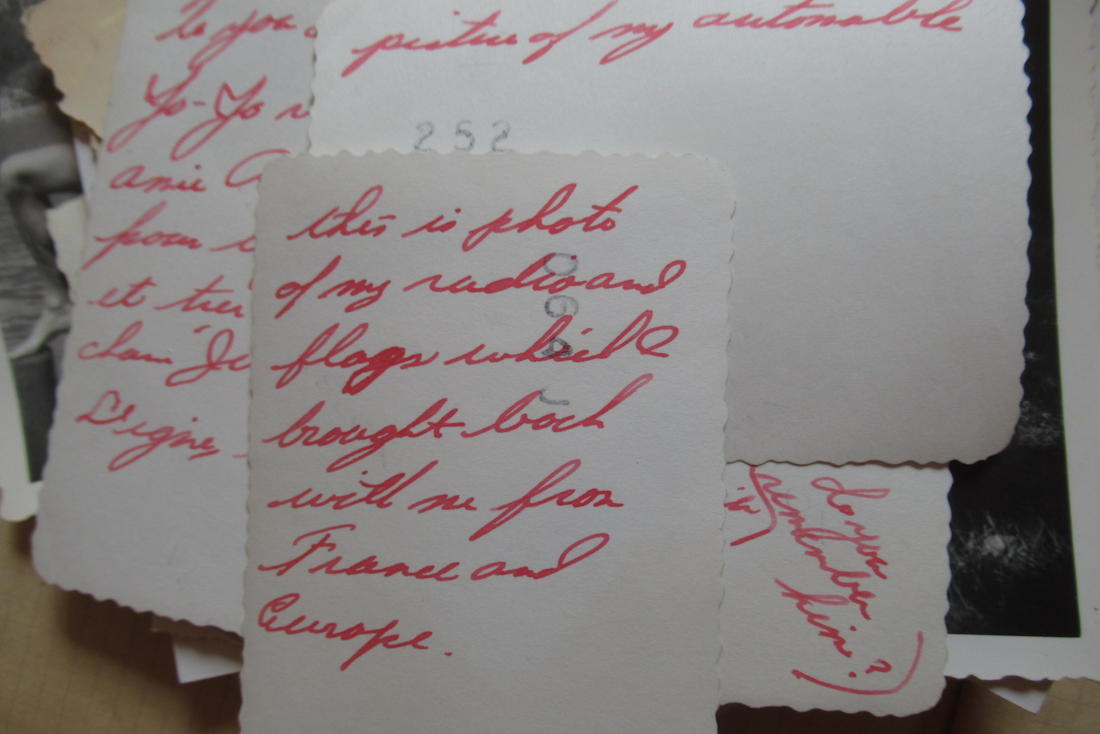 To you
Yo-Yo
amie
pour
et
cham "Je
L'eigne,
picture of my automobile
252
this is photo
of my radio and
flags which I
brought back
with me from
France and
Europe.
do you
remember
him?